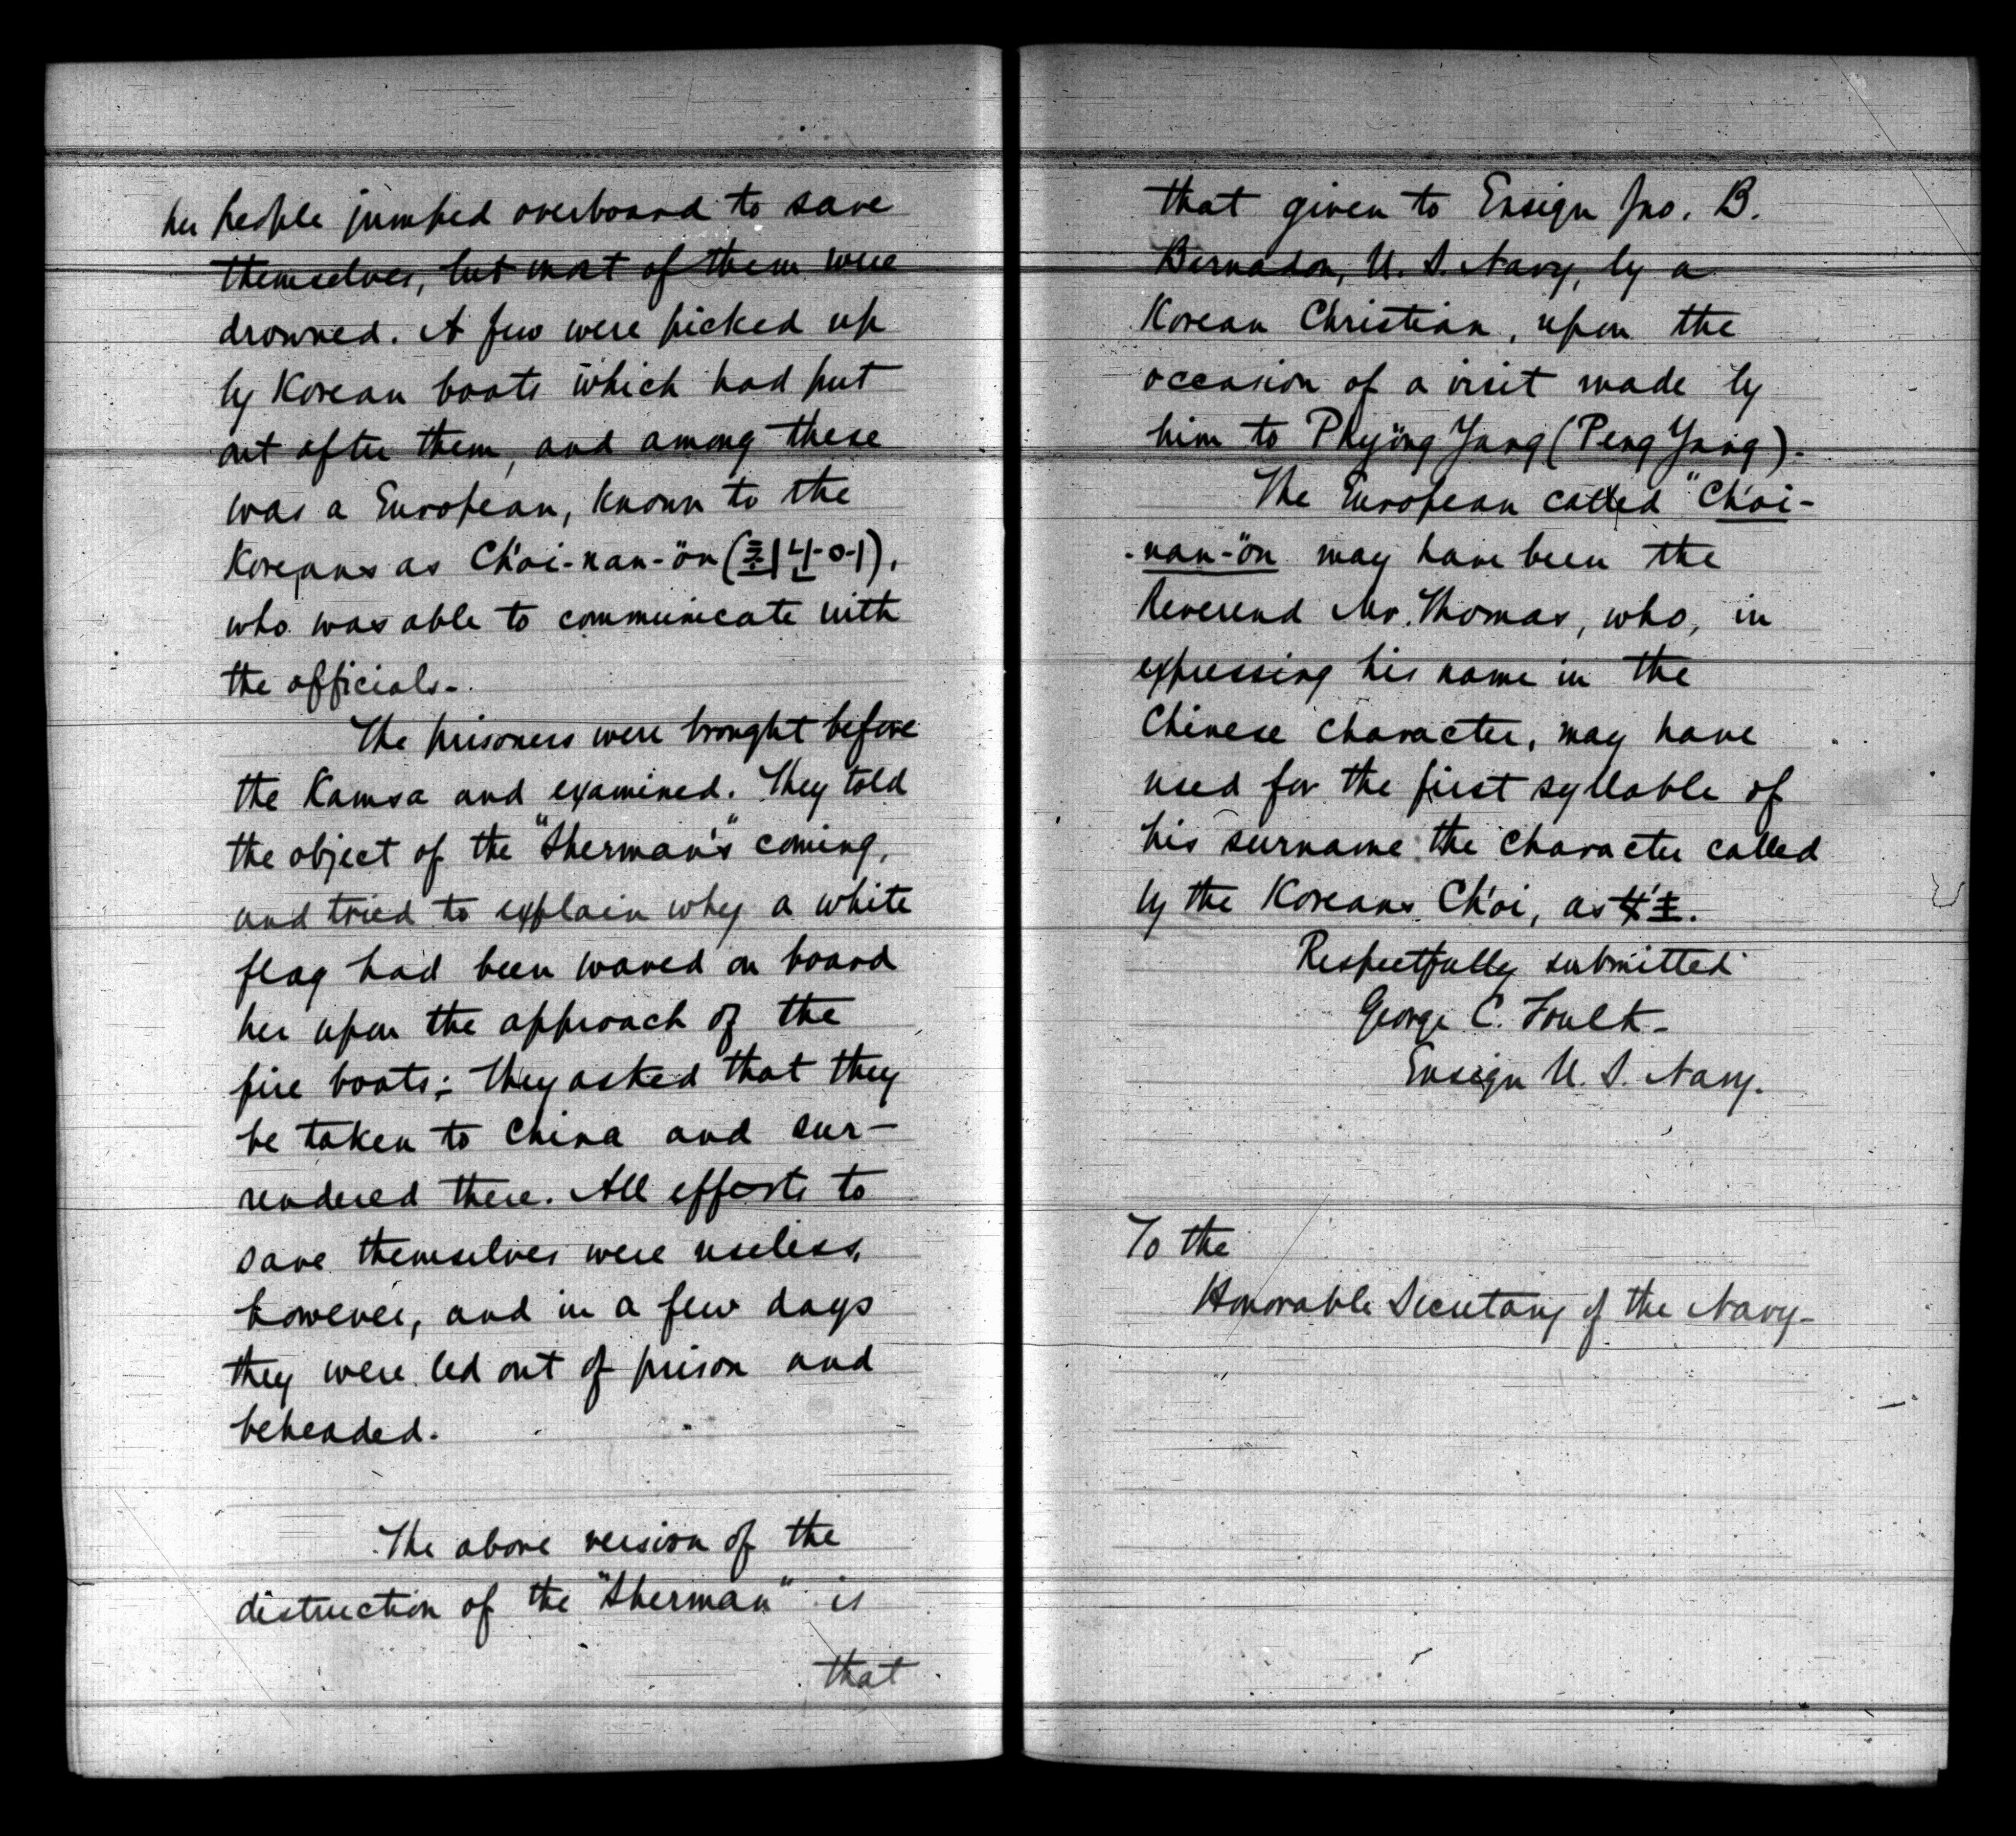 her people jumped overboard to save
themselves, but most of them were
drowned. A few were picked up
by Korean boats which had put
out after them, and among these
was a European, known to the
Koreans as Ch'oi-nan-ön (최난어),
who was able to communicate with
the officials.
The prisoners were brought before
the Kamsa and examined. They told
the object of the "Sherman's" coming,
and tried to explain why a white
flag had been waved on board
her upon the approach of the
fire boats; they asked that they
be taken to China and sur-
rendered there. All efforts to
save themselves were useless,
however, and in a few days
they were led out of prison and
beheaded.
The above version of the
distruction of the "Sherman" is
that
that given to Ensign Jno. B.
Bernadou, U. S. Navy, by a
Korean Christian, upon the
occasion of a visit made by
him to Phyöng Yang (Peng Yang).
The European called "Ch'oi-
-nan-ön may have been the
Reverend Mr. Thomas, who, in
expressing his name in the
Chinese character, may have
used for the first syllable of
his surname the character called
by the Koreans Ch'oi, as
Respectfully submitted
George C. Foulk-
Ensign U. S. Navy.
To the
Honorable Secretary of the Navy-